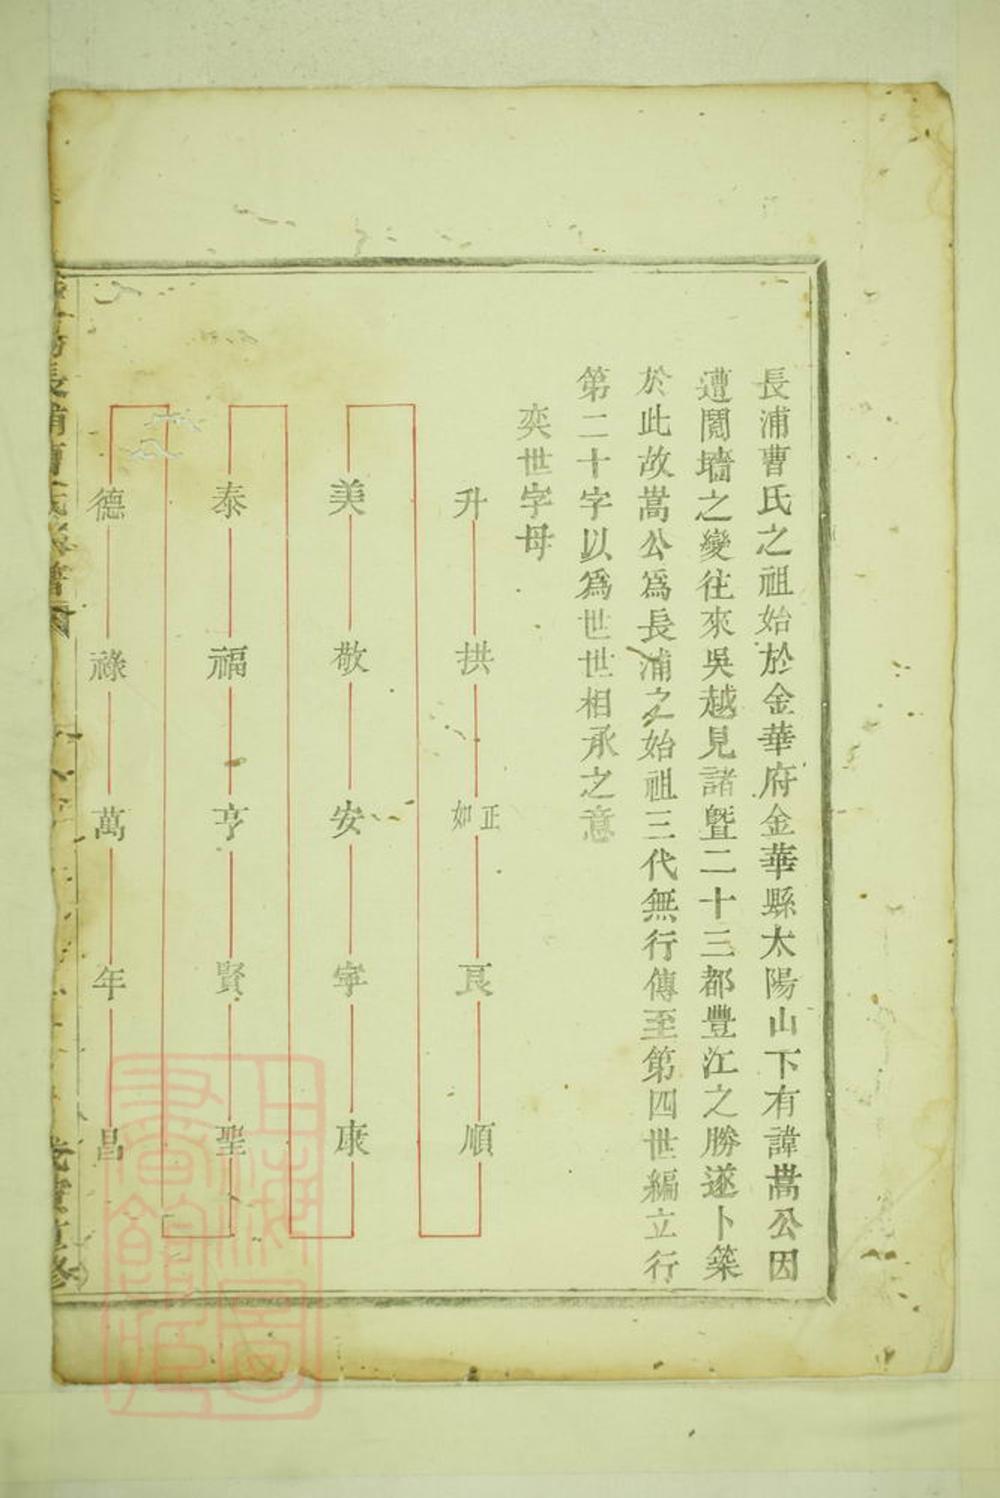 長浦曹氏之祖始於金華府金華縣太陽山下有諱嵩公因
遭鬩墻之變往來吳越見諸曁二十三都豐江之勝遂卜築
於此故嵩公爲長浦之始祖三代無行傳至第四世編立行
第二十字以爲世世相承之意
奕世字母
升 拱 正如 良 順
美 敬 安 寧 康
泰 福 亨 賢 聖
德 祿 萬 年 昌
長浦曹氏